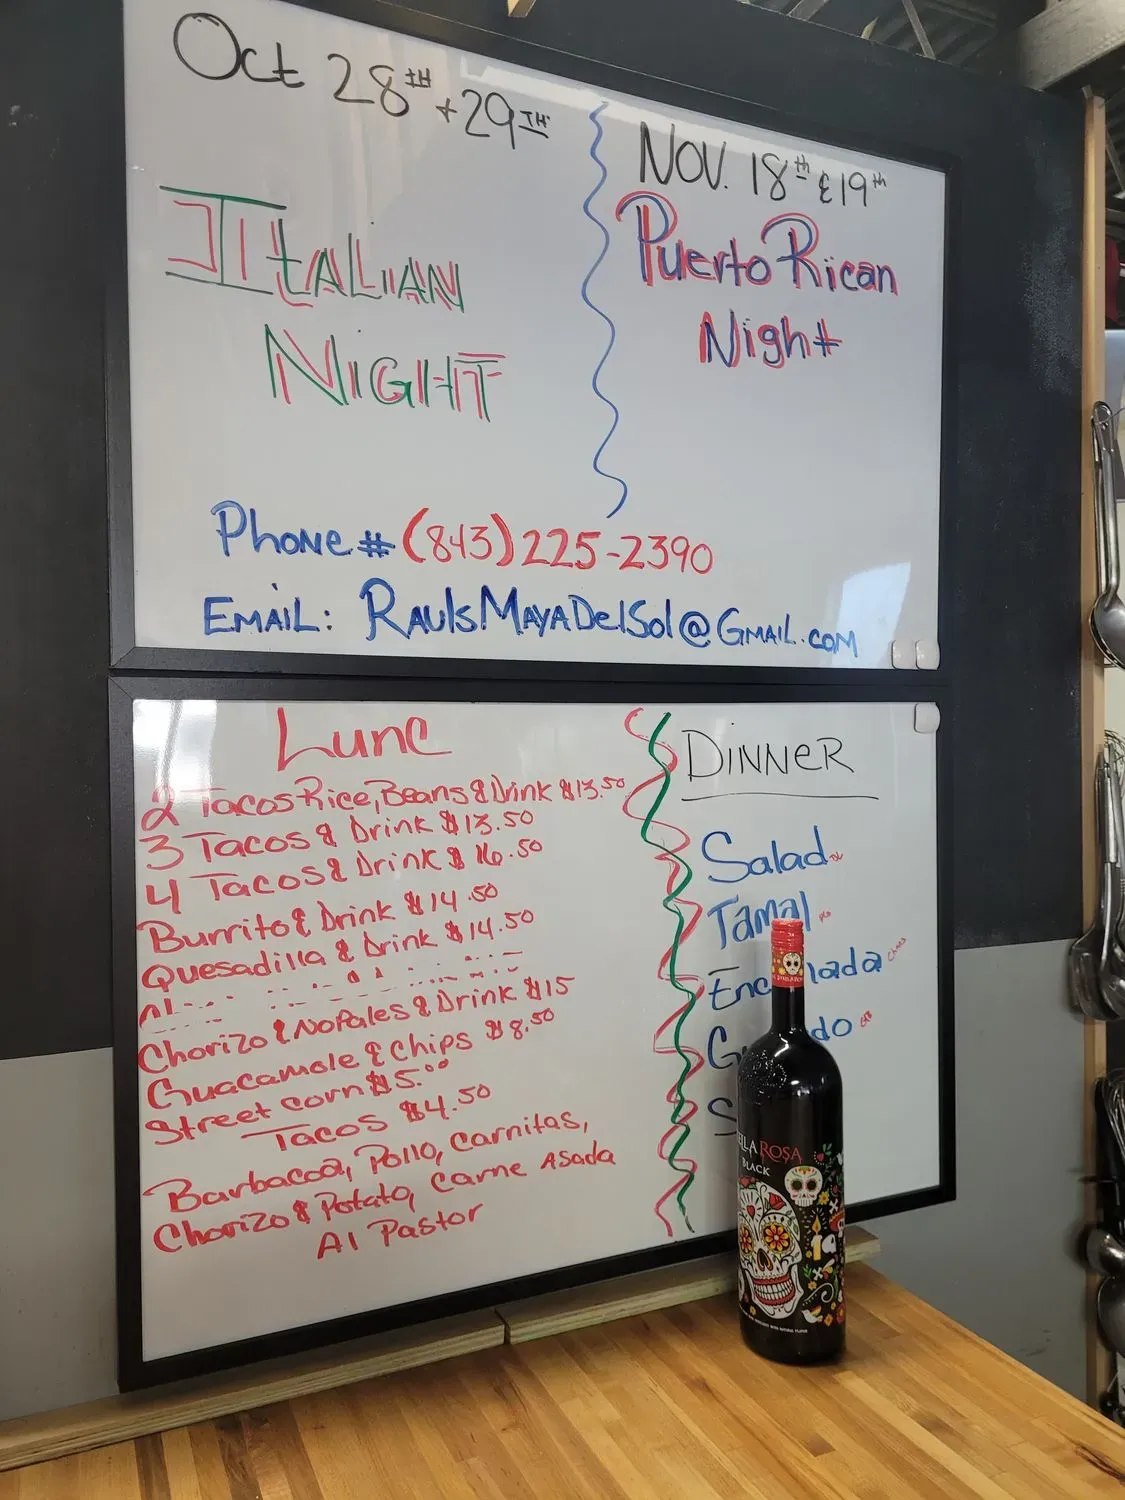 Oct 28TH + 29TH
ITALIAN
NIGHT
NOV. 18th & 19th
Puerto Rican
Night
Phone # (843) 225-2390
EMAIL: RaulsMayaDelSol@Gmail.com
Lunc
2 Tacos Rice, Beans & Drink $13.50
3 Tacos & Drink $13.50
4 Tacos & Drink $16.50
Burrito & Drink $14.50
Quesadilla & Drink $14.50
Chorizo & Nopales & Drink $15
Guacamole & Chips $8.50
Street corn $5.00
Tacos $4.50
Barbacoa, Pollo, Carnitas,
Chorizo & Potato, Carne Asada
Al Pastor
DINNER
Salad
Tamal
BLACK